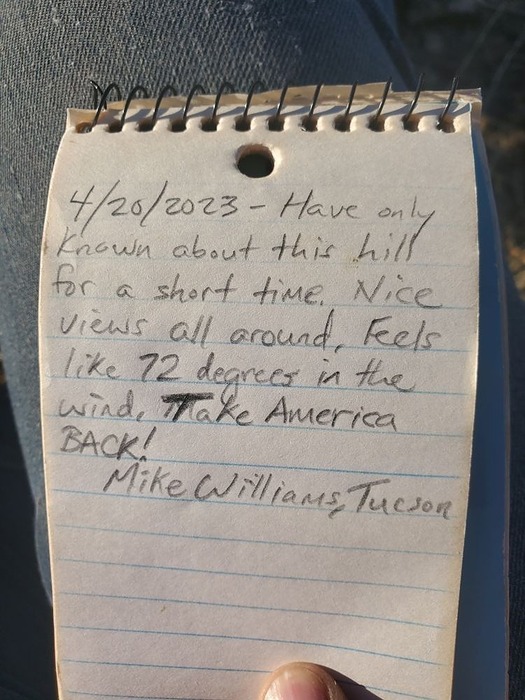 4/20/2023 - Have only
known about this hill
for a short time. Nice
views all around. Feels
like 72 degrees in the
wind. Take America
BACK!
Mike Williams, Tucson